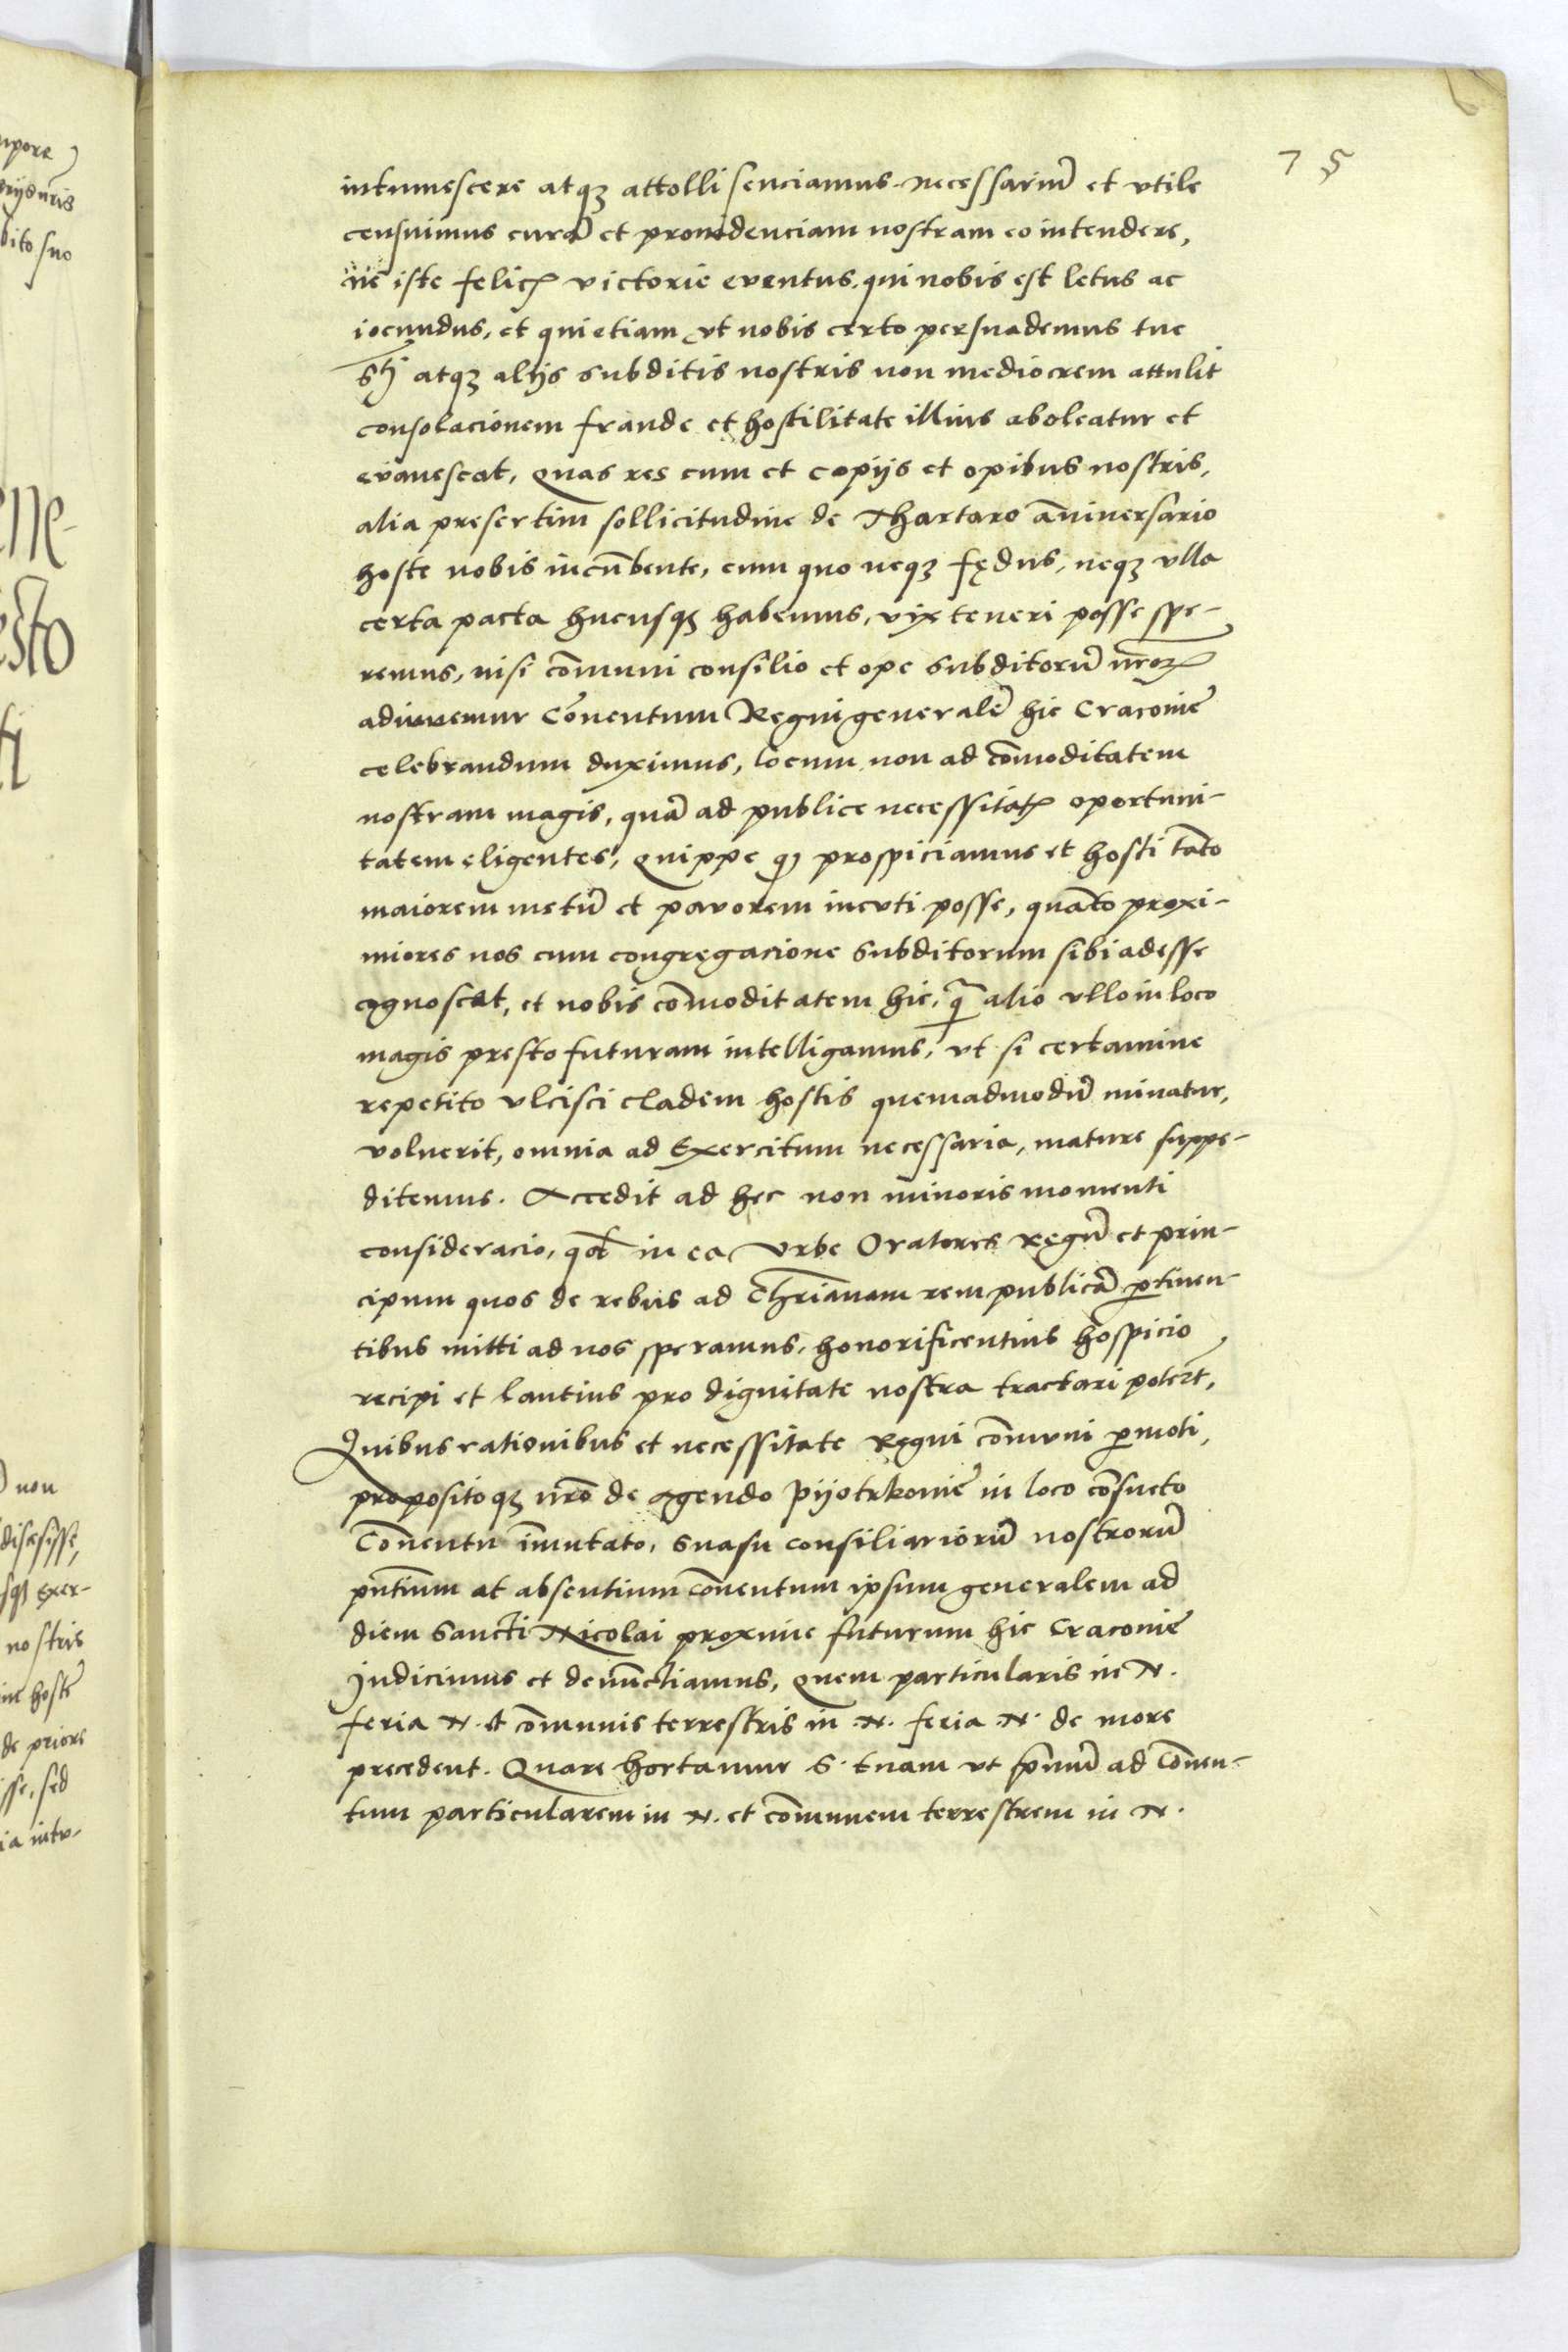 75
intumescere atq3 attolli senciamus. necessariu̅ et vtile
censuimus cura̅ et prouidenciam nostram eo intendere,
ne iste felicis victorie euentus, qui nobis est letus ac
iocundus, et qui etiam, vt nobis certo persuademus tue
S^ti atq3 alijs subditis nostris non mediocrem attulit
consolacionem fraude et hostilitate illius aboleatur et
evanescat, Quas res cum et copijs et opibus nostris,
alia presertim sollicitudine de Thartaro a̅niuersario
hoste nobis incu̅bente, cum quo neq3 fędus, neq3 vlla
certa pacta hucusq3 habemus, vix teneri posse spe-
remus, nisi co̅muni consilio et ope subditoru̅ nr̅oꝝ
adiuuemur Co̅uentum Regni generale̅ hic Cracouie̅
celebrandum duximus, locum non ad co̅moditatem
nostram magis, qua̅ ad publice necessitatis oportuni-
tatem eligentes, Quippe q3 prospiciamus et hosti ta̅to
maiorem metu̅ et pavorem incuti posse, qua̅to proxi-
miores nos cum congregacione subditorum sibi adesse
cognoscat, et nobis co̅moditatem hic, q̅ alio vllo in loco
magis presto futuram intelligamus, vt si certamine
repetito vlcisci cladem hostis quemadmodu̅ minatur,
voluerit, omnia ad Exercitum necessaria, mature suppe-
ditemus. Accedit ad hec non minoris momenti
consideracio, qd̅ in ea vrbe Oratores Regu̅ et prin-
cipum quos de rebus ad Chr̅ianam rempublica̅ ꝑtinen-
tibus mitti ad nos speramus, honorificentius hospicio
recipi et lautius pro dignitate nostra tractari poter̅t,
Quibus rationibus et necessitate Regni co̅muni ꝑmoti,
propositoq3 nr̅o de agendo Pijotrkouie̅ in loco co̅sueto
Co̅uentu i̅mutato, suasu consiliarioru̅ nostroru̅
pn̅tium at absentium co̅uentum ipsum generalem ad
diem Sancti Nicolai proxime futurum hic Cracouie̅
Indicimus et denu̅ctiamus, Quem particularis in N.
feria N. et co̅munis terrestris in .N. feria .N. de more
precedent. Quare hortamur S. tuam vt pr̅imu̅ ad Co̅uen-
tum particularem in N. et co̅munem terrestrem in N.